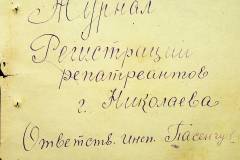 Журнал
Регистрации
репатреантов
г. Николаева
Ответств. инсп.